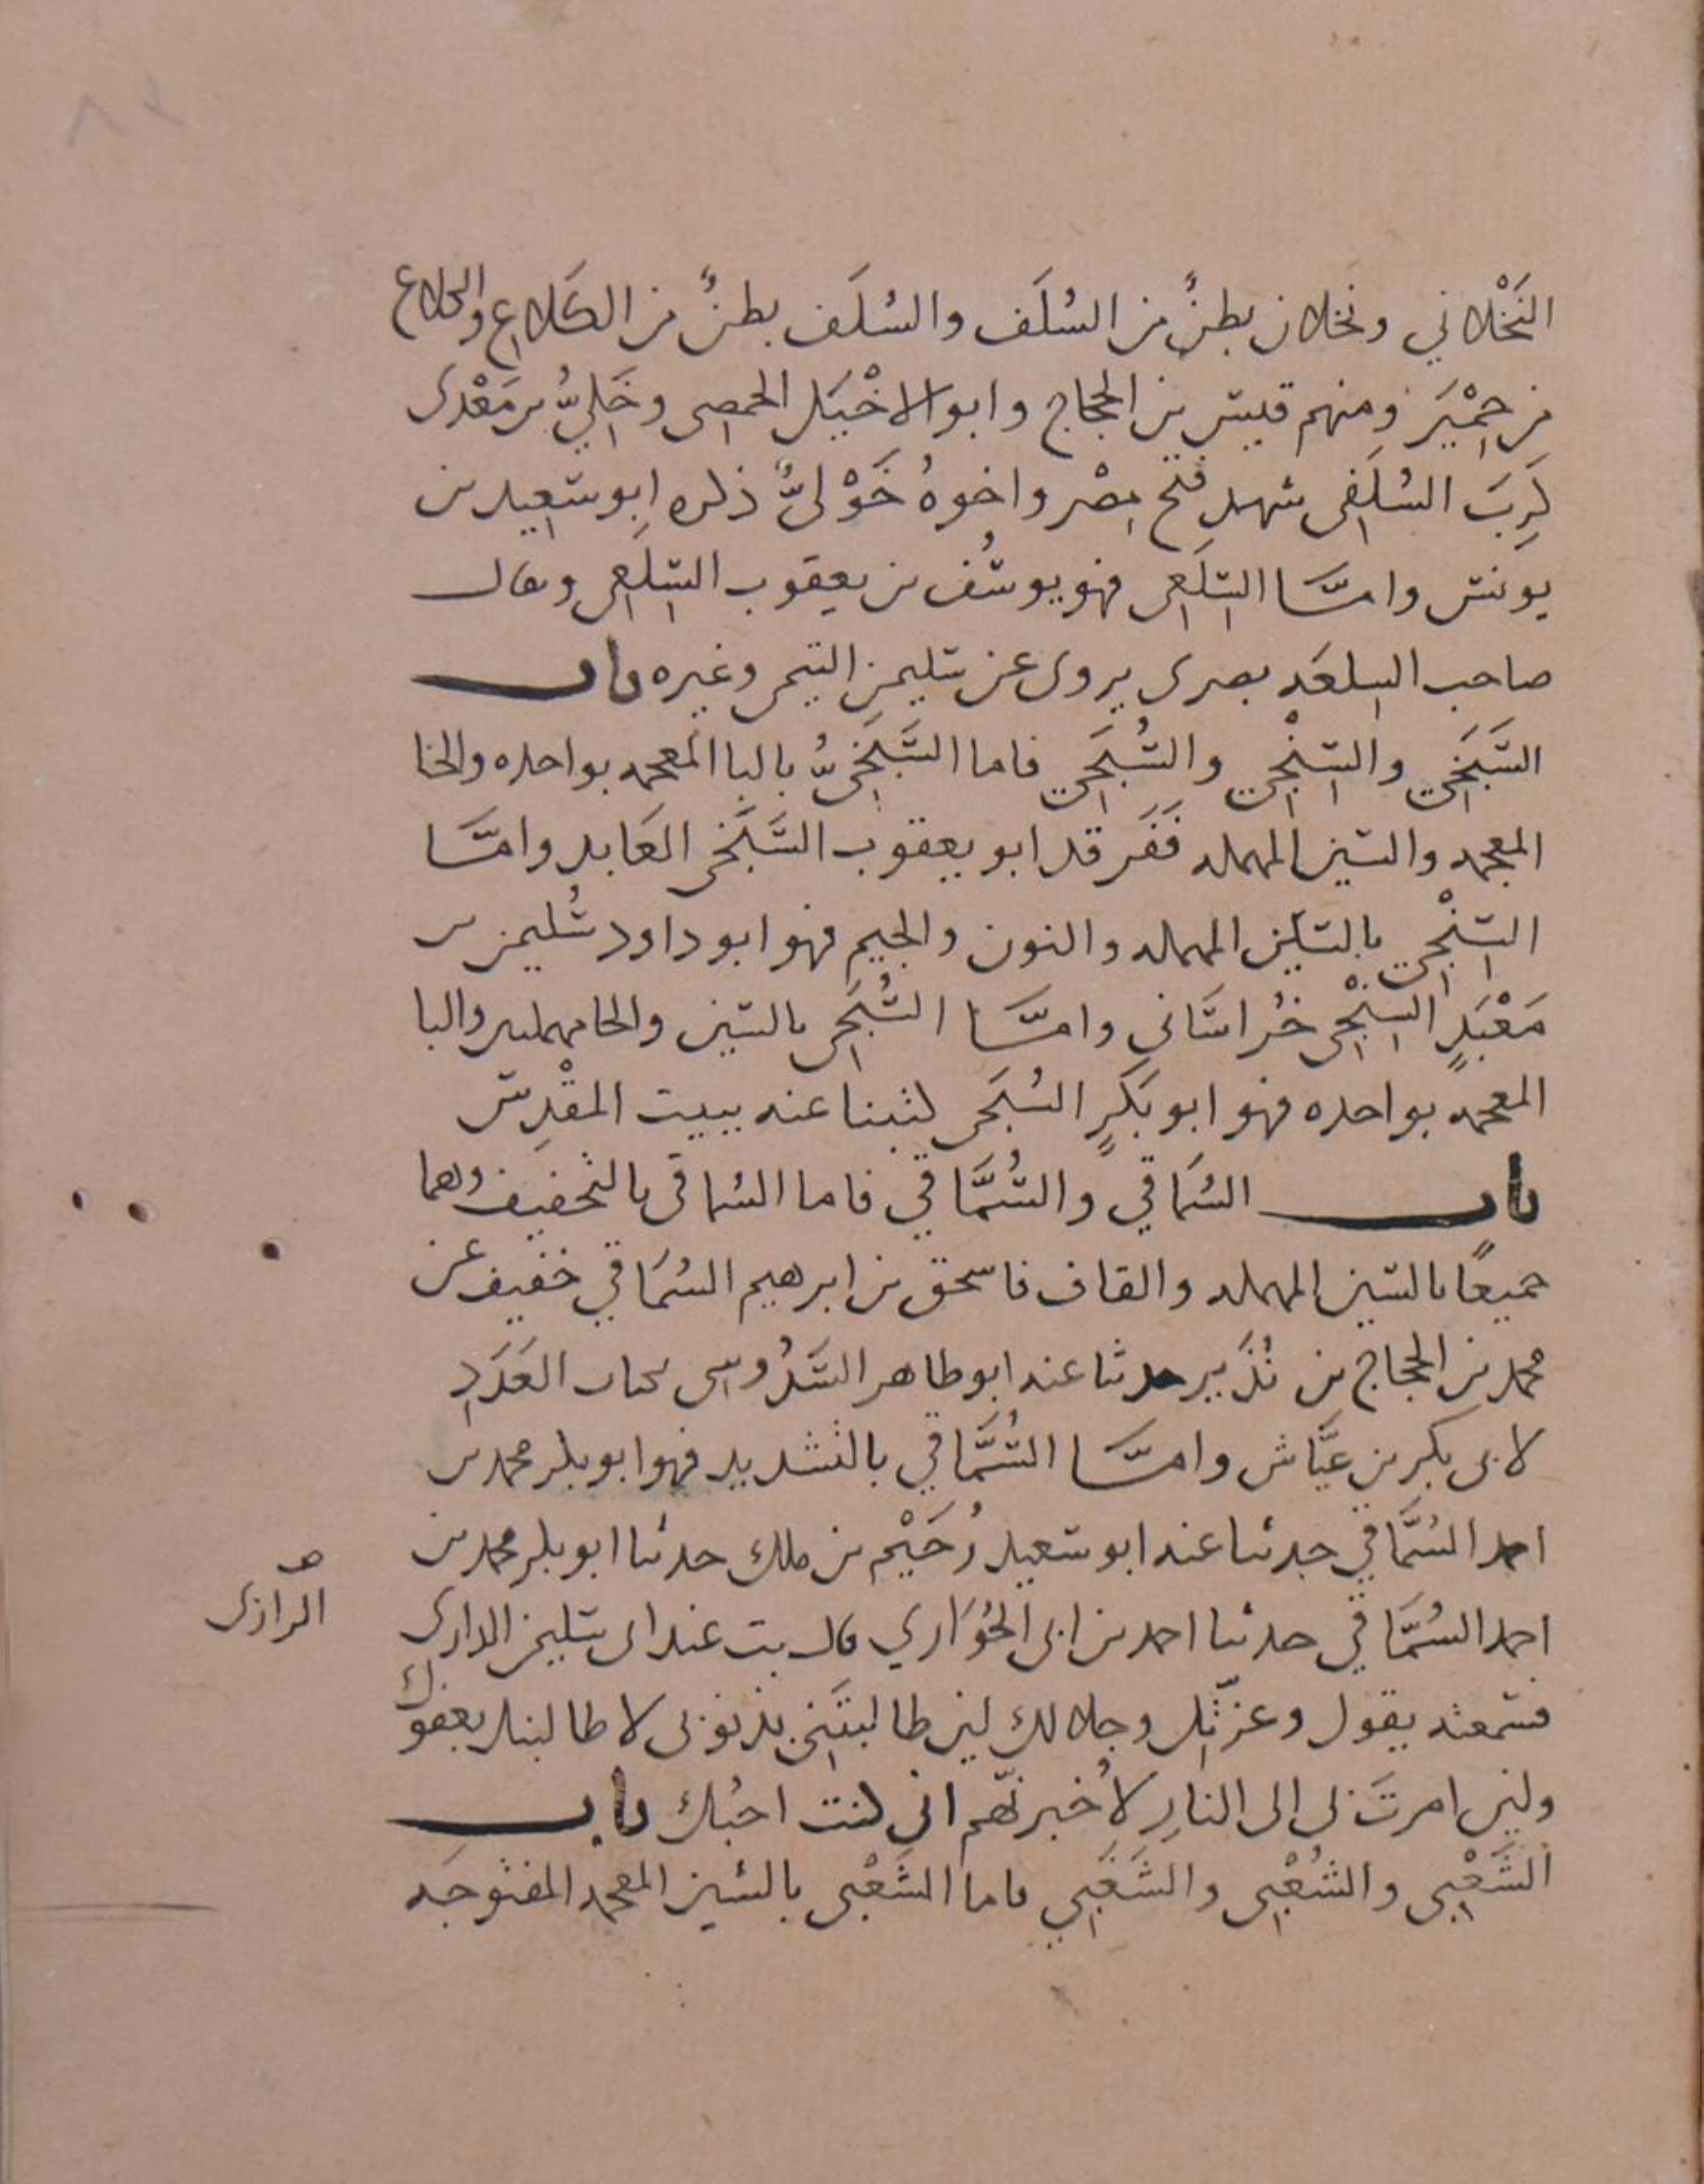 النَخْلاني ونخلان بطنٌ من السُلَف والسُلَف بطنٌ من الكَلاع والكلاع
من حِمْيَر ومنهم قيس بن الحجاج وابو الاخْيَل الحمصى وخَلِيُّ بن مَعْدى
كَرِبَ السُلَفى شهد فتح مصْر واخوهُ خَوْلىٌّ ذكره ابو سَعيد بن
يونس وامَّا السِلَعى فهو يوسُف بن يعقوب السِلَعى وىقال
صاحب السلعه بصرى يروى عن سليمن التيمى وغيره باب
السَّبَخي والسِنْجي والسُبَحي فاما السَّبَخيُّ بالبا المعجمه بواحده والخا
المعجمه والسين المهمله فَفَرقد ابو يعقوب السَّبَخى العَابد وامَّا
السِنْجي بالسين المهمله والنون والجيم فهو ابو داود سُليمن بن
مَعْبَدٍ السِنْجى خُراسَانى وامَّا السُبَحى بالسين والحا مهملىں والبا
المعجمه بواحده فهو ابو بَكرٍ السُبَحى كتبنا عنه ببيت المقْدِس
باب السُمَاقي والسُمَّاقي فاما السُماقى بالتخفيف وهما
جميعًا بالسين المهمله والقاف فاسحق بن ابرهيم السُمَاقي خفيف عن
محمد بن الحجاج بن نُذَير حدثنا عنه ابو طاهر السَدُوسى بكتاب العَدَدِ
لابى بكر بن عيَّاش وامَّا السُمَّاقي بالتشديد فهو ابو بكر محمد بن
احمد السُمَّاقي حدثنا عنه ابو سَعيد دُحَيْم بن ملك حدثنا ابو بكر محمد بن
احمد السُمَّاقي حدثنا احمد بن ابى الحُوَاري قال بت عند ابى سليمن الدارى
صـ
الرازى
فسمعته يقول وعزّتك وجلالك لين طالبتَنى بذنوبى لاطالبنك بعفوك
ولين امرتَ بى الى النارِ لأُخبرنّهم انى كنت احبُك باب
الشَعْبى والشُعْبى والشَغَبي فاما الشَعْبى بالشين المعجمه المفتوحَه